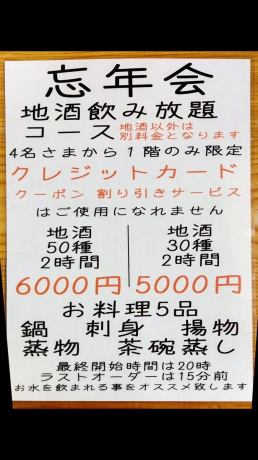 忘年会
地酒飲み放題
コース 地酒以外は
別料金となります
4名さまから1階のみ限定
クレジットカード
クーポン 割り引きサービス
はご使用になれません
地酒 地酒
50種 30種
2時間 2時間
6000円 5000円
お料理5品
鍋 刺身 揚物
蒸物 茶碗蒸し
最終開始時間は20時
ラストオーダーは15分前
お水を飲まれる事をオススメ致します